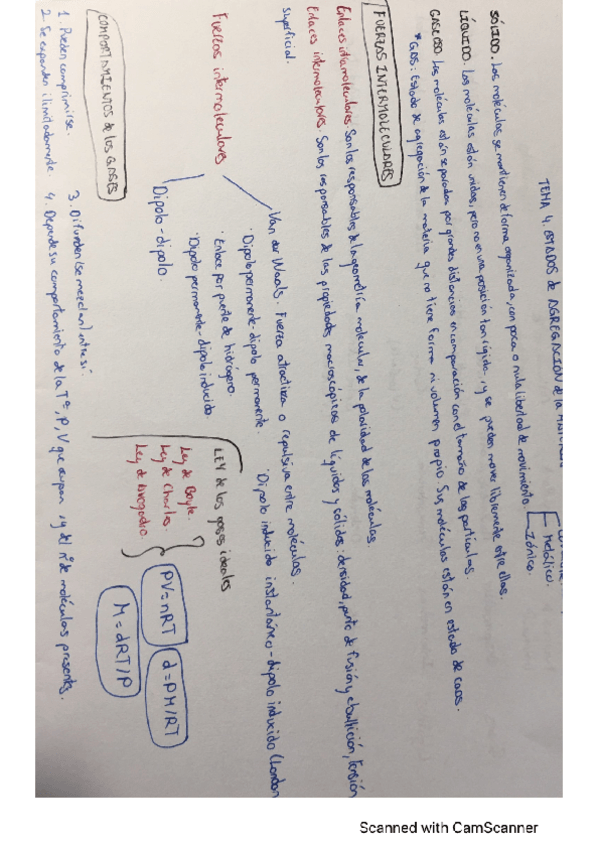 TEMA 4. ESTADOS de AGREGACIÓN de la
Metálico.
Iónico.
SÓLIDO. Las moléculas se mantienen de forma organizada, con poca o nula libertad de movimiento.
LÍQUIDO. Las moléculas están unidas, pero no en una posición tan rígida, y se pueden mover libremente entre ellas.
GASEOSO. Las moléculas están separadas por grandes distancias en comparación con el tamaño de las partículas.
*GAS: Estado de agregación de la materia que no tiene forma ni volumen propio. Sus moléculas están en estado de caos.
FUERZAS INTERMOLECULARES
Enlaces intramoleculares. Son los responsables de la geometría molecular, de la polaridad de las moléculas.
Enlaces intermoleculares. Son los responsables de las propiedades macroscópicas de líquidos y sólidos: densidad, punto de fusión y ebullición, tensión
superficial.
Fuerzas intermoleculares
Van der Waals. Fuerza atractiva o repulsiva entre moléculas.
· Dipolo permanente-dipolo permanente.
· Dipolo inducido instantáneo-dipolo inducido (London
· Enlace por puente de hidrógeno.
· Dipolo permanente-dipolo inducido
Dipolo-dipolo.
LEY de los gases ideales
Ley de Boyle.
Ley de Charles.
Ley de Avogadro.
PV=nRT
d=PM/RT
M=dRT/P
COMPORTAMIENTOS de los GASES
1. Pueden comprimirse.
2. Se expanden ilimitadamente.
3. Difunden (se mezclan) entre sí.
4. Depende su comportamiento de la Tª, P, V que ocupan, y del nº de moléculas presentes.
Scanned with CamScanner